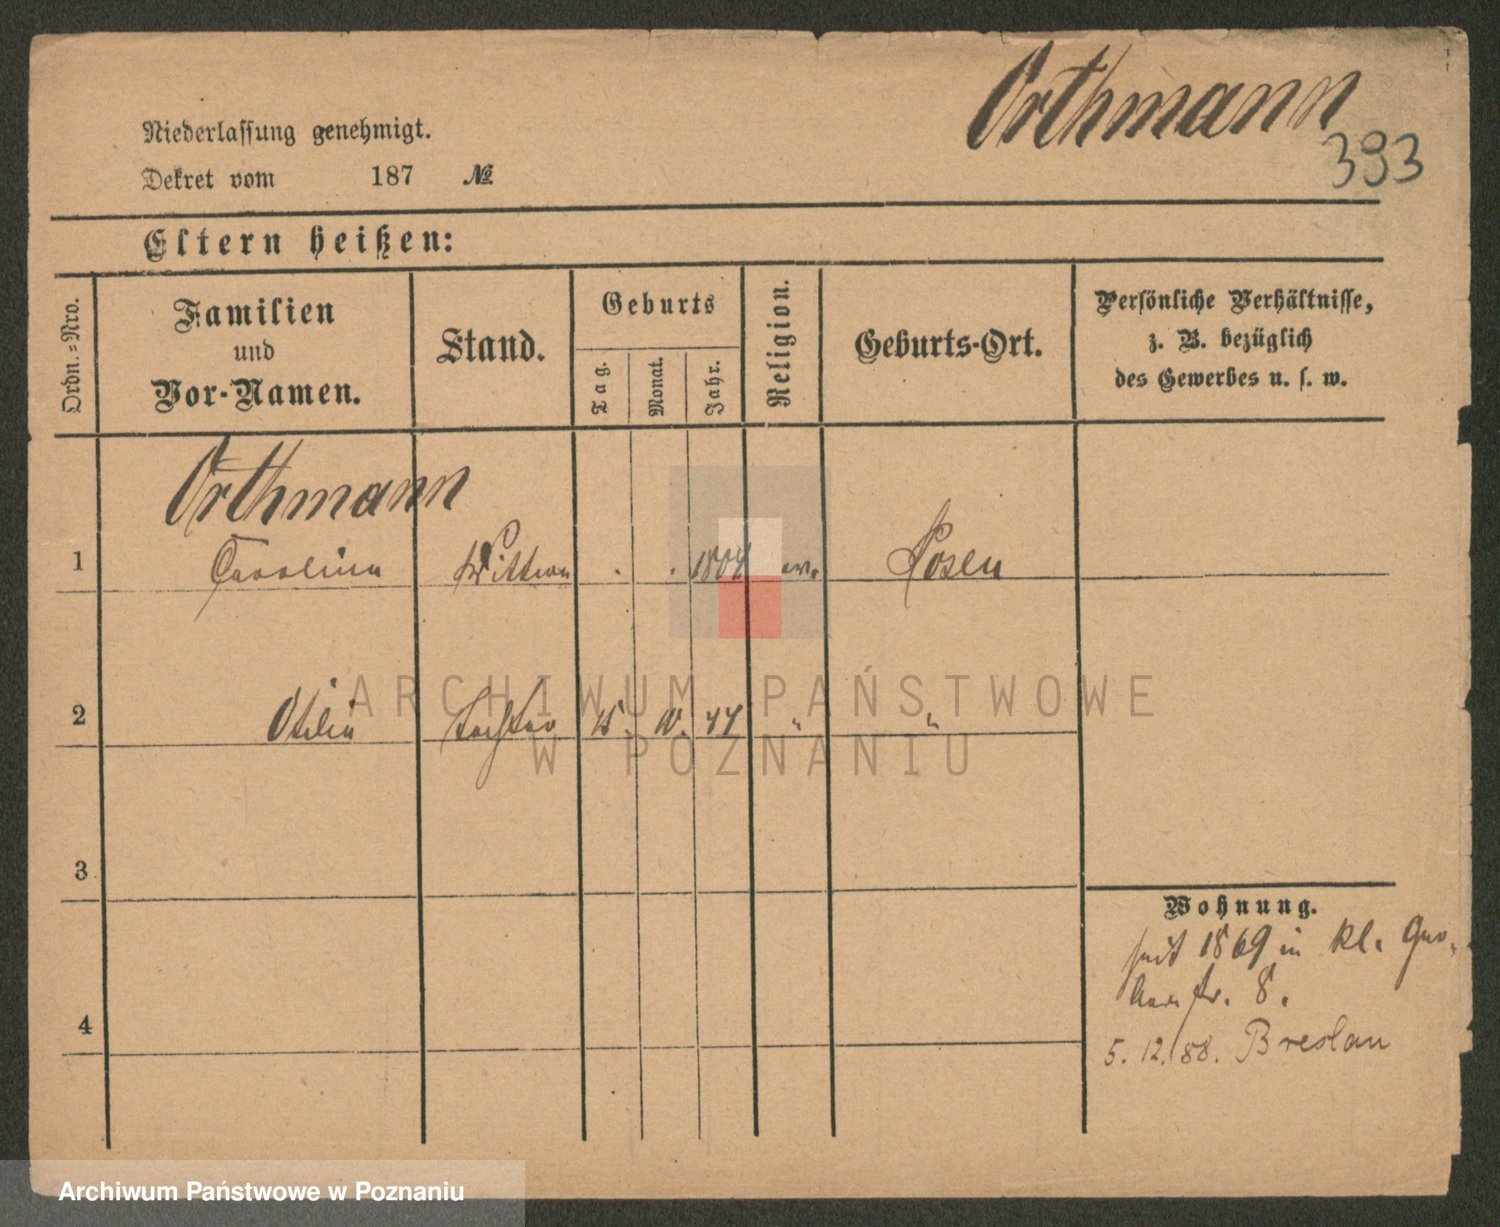 Orthmann
393
Niederlassung genehmigt.
Dekret vom 187 №
Eltern heißen:
Ordn.-Nro.
Familien
und
Vor-Namen.
Stand.
Geburts
Tag.
Monat.
Jahr.
Religion.
Geburts-Ort.
Persönliche Verhältnisse,
z. B. bezüglich
des Gewerbes u. s. w.
Orthmann
1 Carolina Wittwe . . 1804 ev. Posen
2 Otilie Tochter 15. 10. 44 " "
3
4
Wohnung.
seit 1869 in kl. Ger-
berstr. 8.
5. 12. 88. Breslau
ARCHIWUM PAŃSTWOWE
W POZNANIU
Archiwum Państwowe w Poznaniu